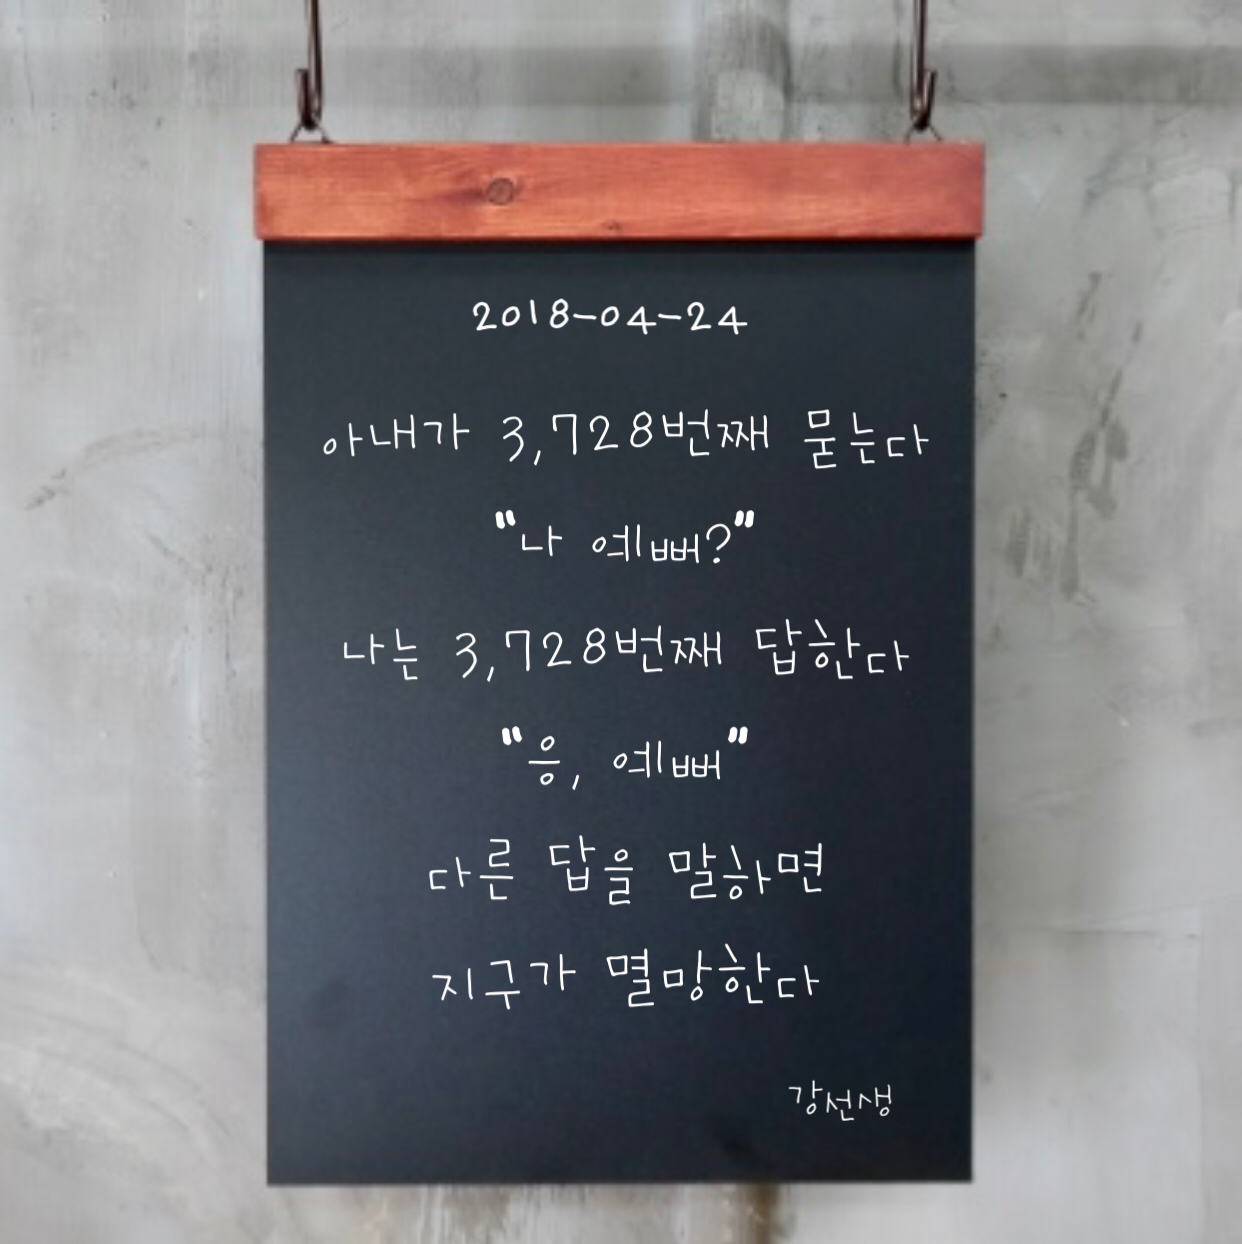 2018-04-24
아내가 3,728번째 묻는다
"나 예뻐?"
나는 3,728번째 답한다
"응, 예뻐"
다른 답을 말하면
지구가 멸망한다
강선생